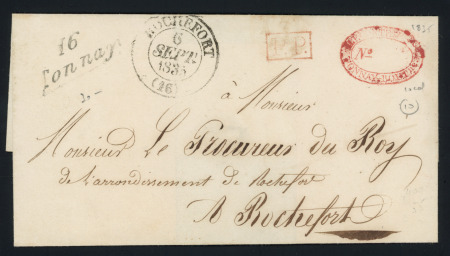 16
Tonnay
ROCHEFORT
6
SEPT.
1835
(16)
P.P.
No
1835
local
10
à Monsieur
Monsieur Le Procureur du Roy
de l'arrondissement de Rochefort
A Rochefort